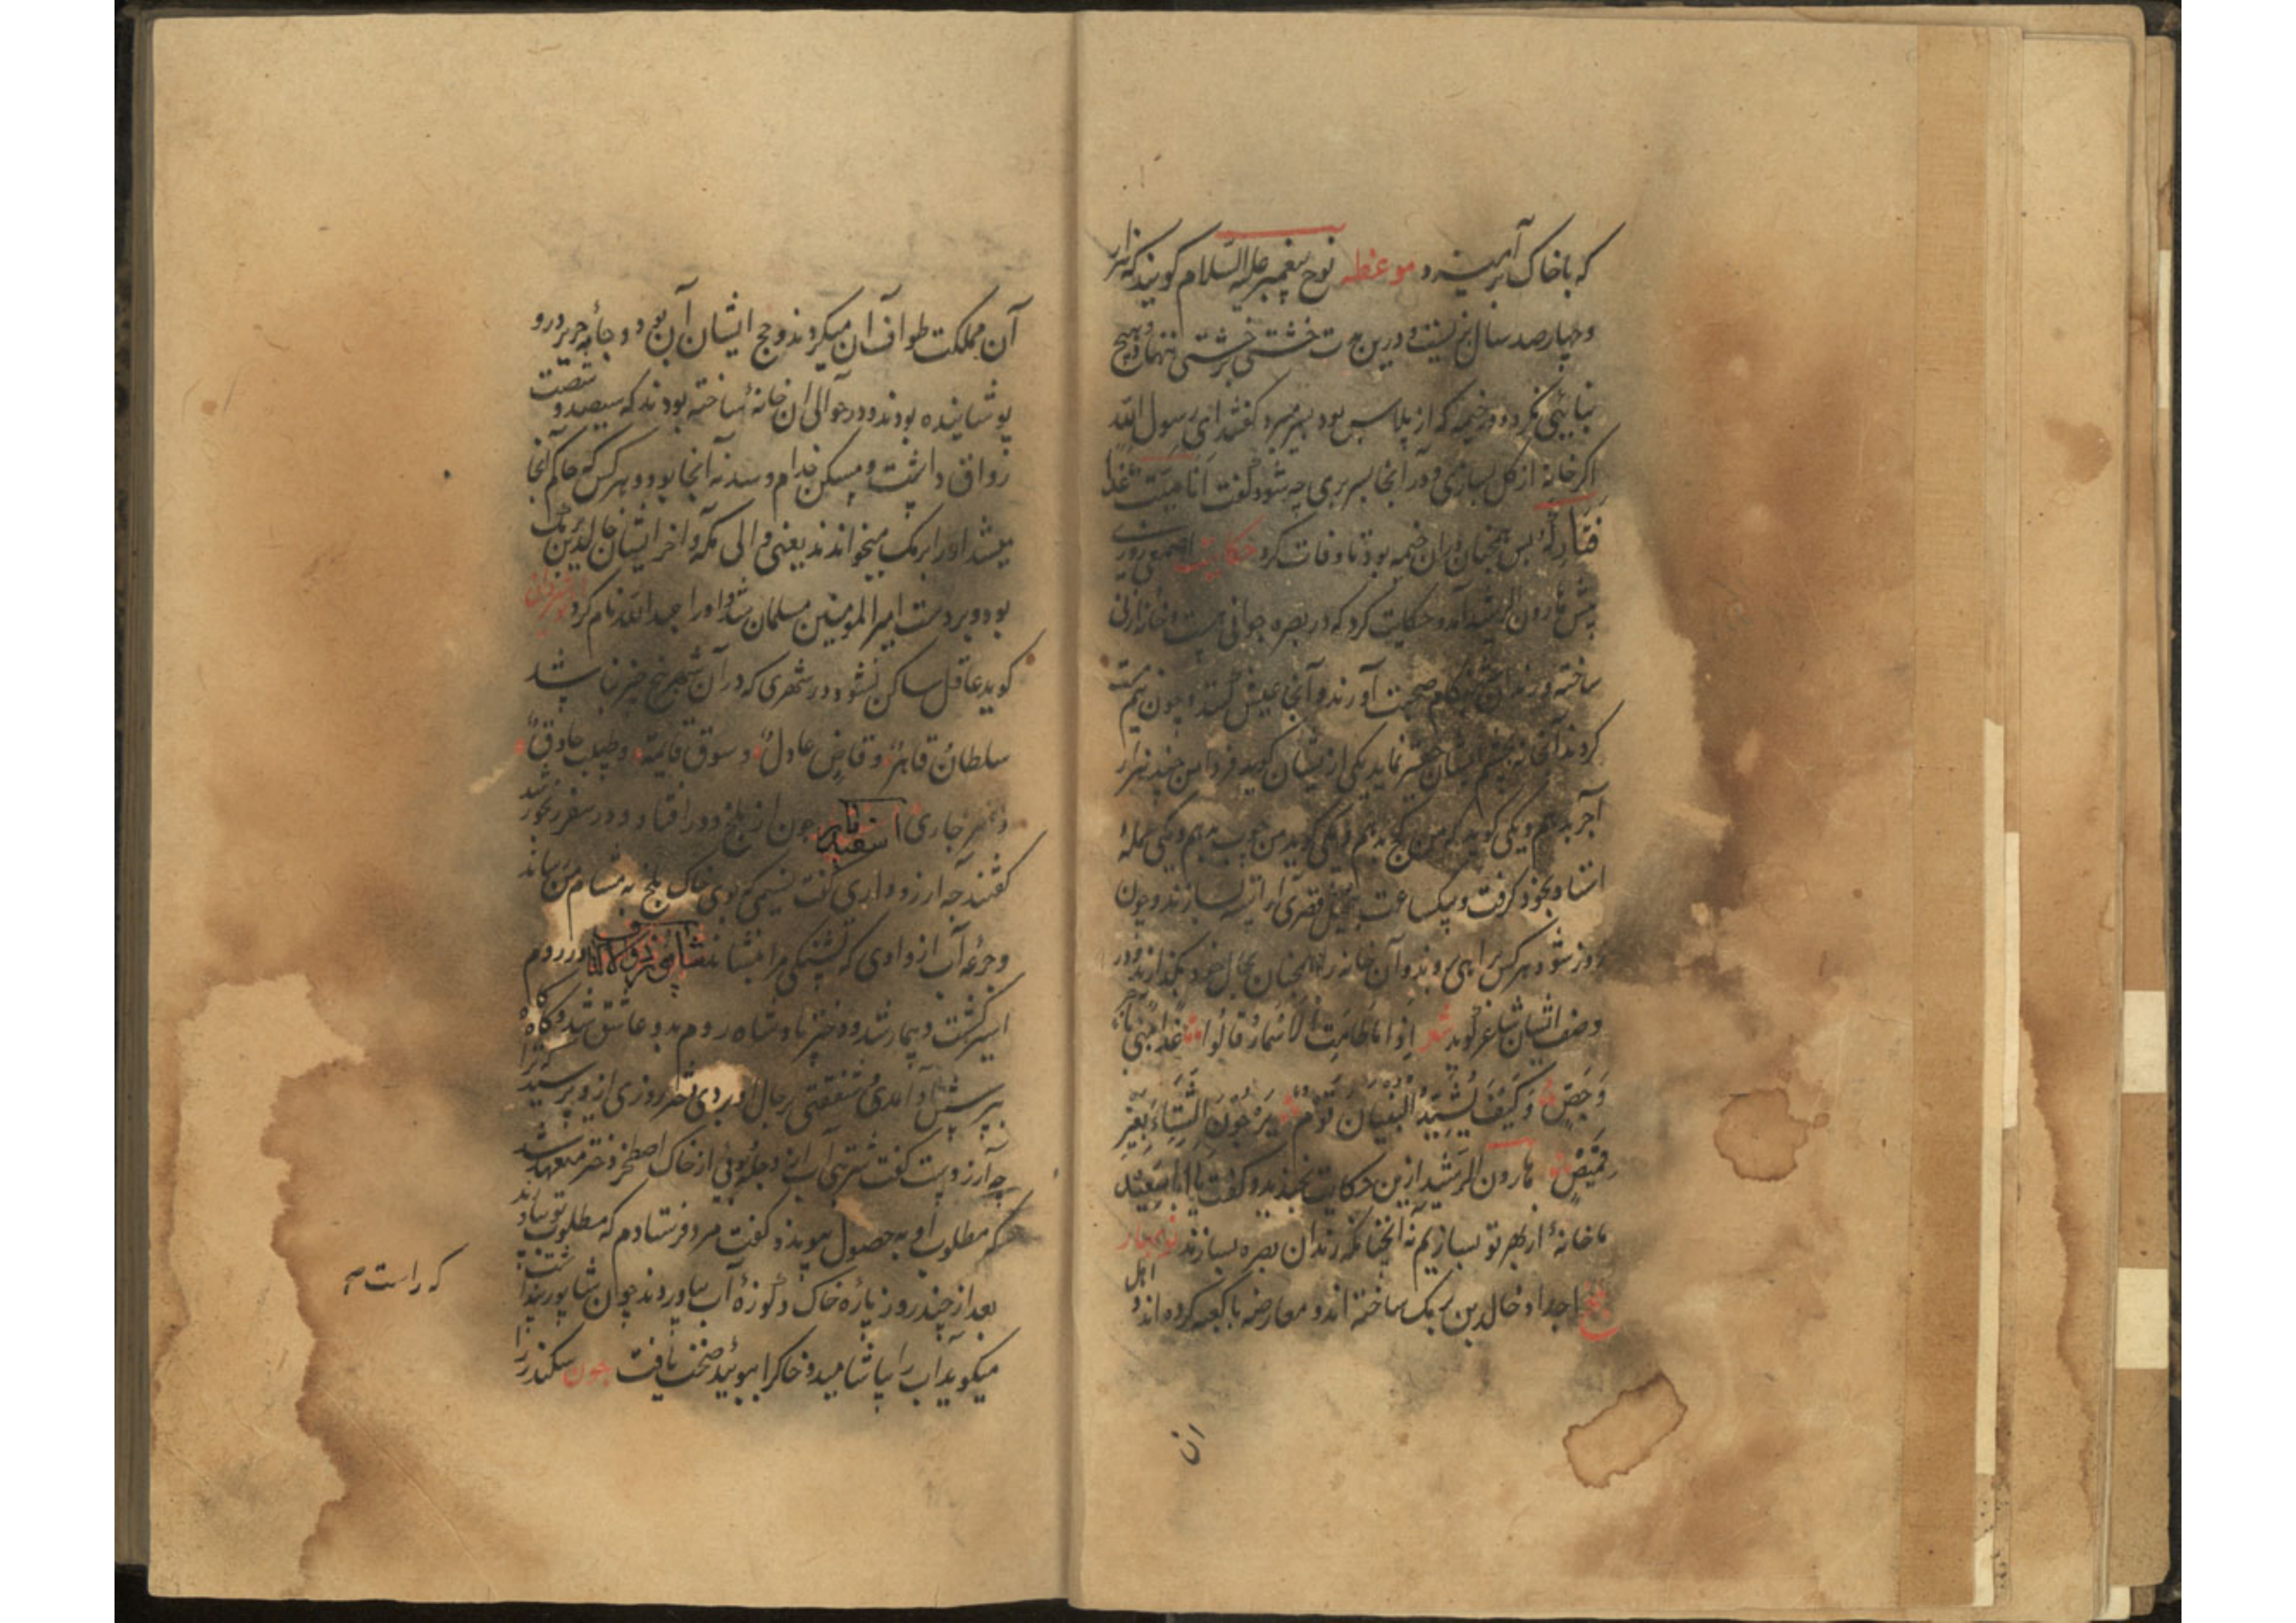 که با خاک برآمیزد موعظه نوح پیغمبر علیه السلام گویند که هزار
و چهارصد سال بزیست و درین مدت خشتی بر خشتی ننهاد و هیچ
بنایی نکرد و در خیمه که از پلاس بود بسر میبرد گفتند ای رسول الله
اگر خانه از گل بسازی و در آنجا بسر بری چه شود گفت انا میت غدا
فتارکه پس همچنان در آن خیمه بود تا وفات کرد حکایت اصمعی روزی
پیش هارون الرشید آمد و حکایت کرد که در بصره جوانی هست و خانه از نی
ساخته و رندان هنگام صحبت آورند و آنجا عیش کنند و چون
کردند آن خانه بچشم ایشان حقیر نماید یکی از میشان گوید فردا من چند هزار
آجر بدهم و یکی گوید که من گچ بدهم و یکی گوید من چوب بدهم و یکی جمله
استاد بخود گرفت و یکساعت قصری آراسته بسازند و چون
روز شود هر کس براهی روند و آن خانه را همچنان بحال خود بگذارند و در
وصف ایشان شاعر گوید شعر اذا ما طابت الاسمار قالوا غدا نبنی
وجص وکیف یشید البنیان قوم یرجون الشتاء بغیر
قمیص هارون الرشید ازین حکایت بخندید و گفت یا ابا سعید
ما خانهٔ از بهر تو بسازیم نه آنچنانکه رندان بصره بسازند نوبهار
بلخ اجداد خالد بن برمک ساخته اند و معارضه با کعبه کرده اند و اهل
ان
آن مملکت طواف آن میکردند و حج ایشان آن بود و جامه حریر درو
پوشانیده بودند و در حوالی ان خانهٔ ساخته بودند که سیصد و شصت
رواق داشت و مسکن خدام و سدنه آنجا بود و هر کس که حاکم آنجا
میشد او را برمک میخواندند یعنی والی مکه و آخر ایشان خالد برمک
بود و بر دست امیر المومنین مسلمان شد و او را عبد الله نام کرد
گوید عاقل ساکن نشود در شهری که در آن شهر پنج چیز نباشد
سلطان قاهر و قاض عادل و سوق قایمة و طبیب حاذق
و نهر جاری اسفندیار چون از بلخ دور افتاد و در سفر رنجور شد
گفتند چه آرزو داری گفت نسیمی که بوی خاک بلخ به مشام من رساند
و جرعه آب از وادی که تشنگی مرا بنشاند شاپور ذوالاکتاف در روم
اسیر گشت و بیمار شد و دختر پادشاه روم بدو عاشق شد و گاه گاه
پرسش آمدی و شفقتی بر حال او بردی دختر روزی ازو پرسید
چه آرزوست گفت شربتی آب از دجله و بوئی از خاک اصطخر دختر متعهد شد
که مطلوب او به حصول پیوندد گفت مرد فرستادم که مطلوب تو بیاورند
بعد از چند روز پارهٔ خاک و کوزهٔ آب بیاوردند چون شاپور
میگوید آب را بیاشامید و خاک را ببوئید صحت یافت چون سکندر را
که راست صح